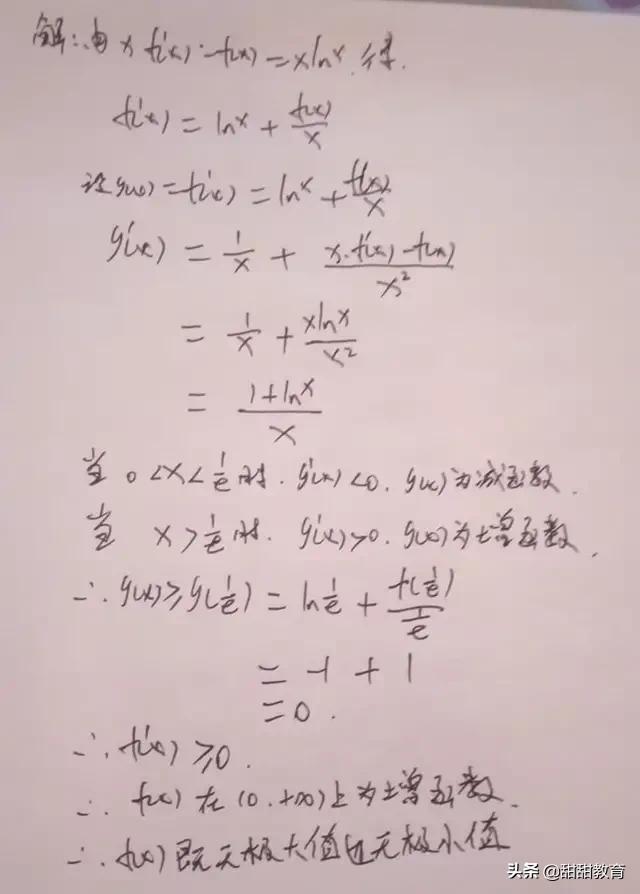 解:由 x f'(x)-f(x)=xlnx 得.
f'(x)=lnx+f(x)/x
设g(x)=f'(x)=lnx+f(x)/x
g'(x)=1/x+(x·f'(x)-f(x))/x²
=1/x+xlnx/x²
=(1+lnx)/x
当 0<x<1/e时. g'(x)<0. g(x)为减函数.
当 x>1/e时. g'(x)>0. g(x)为增函数.
∴g(x)≥g(1/e)=ln1/e+f(1/e)/(1/e)
=-1+1
=0.
∴f'(x)≥0.
∴f(x)在(0.+∞)上为增函数.
∴f(x)既无极大值也无极小值
头条@甜甜教育